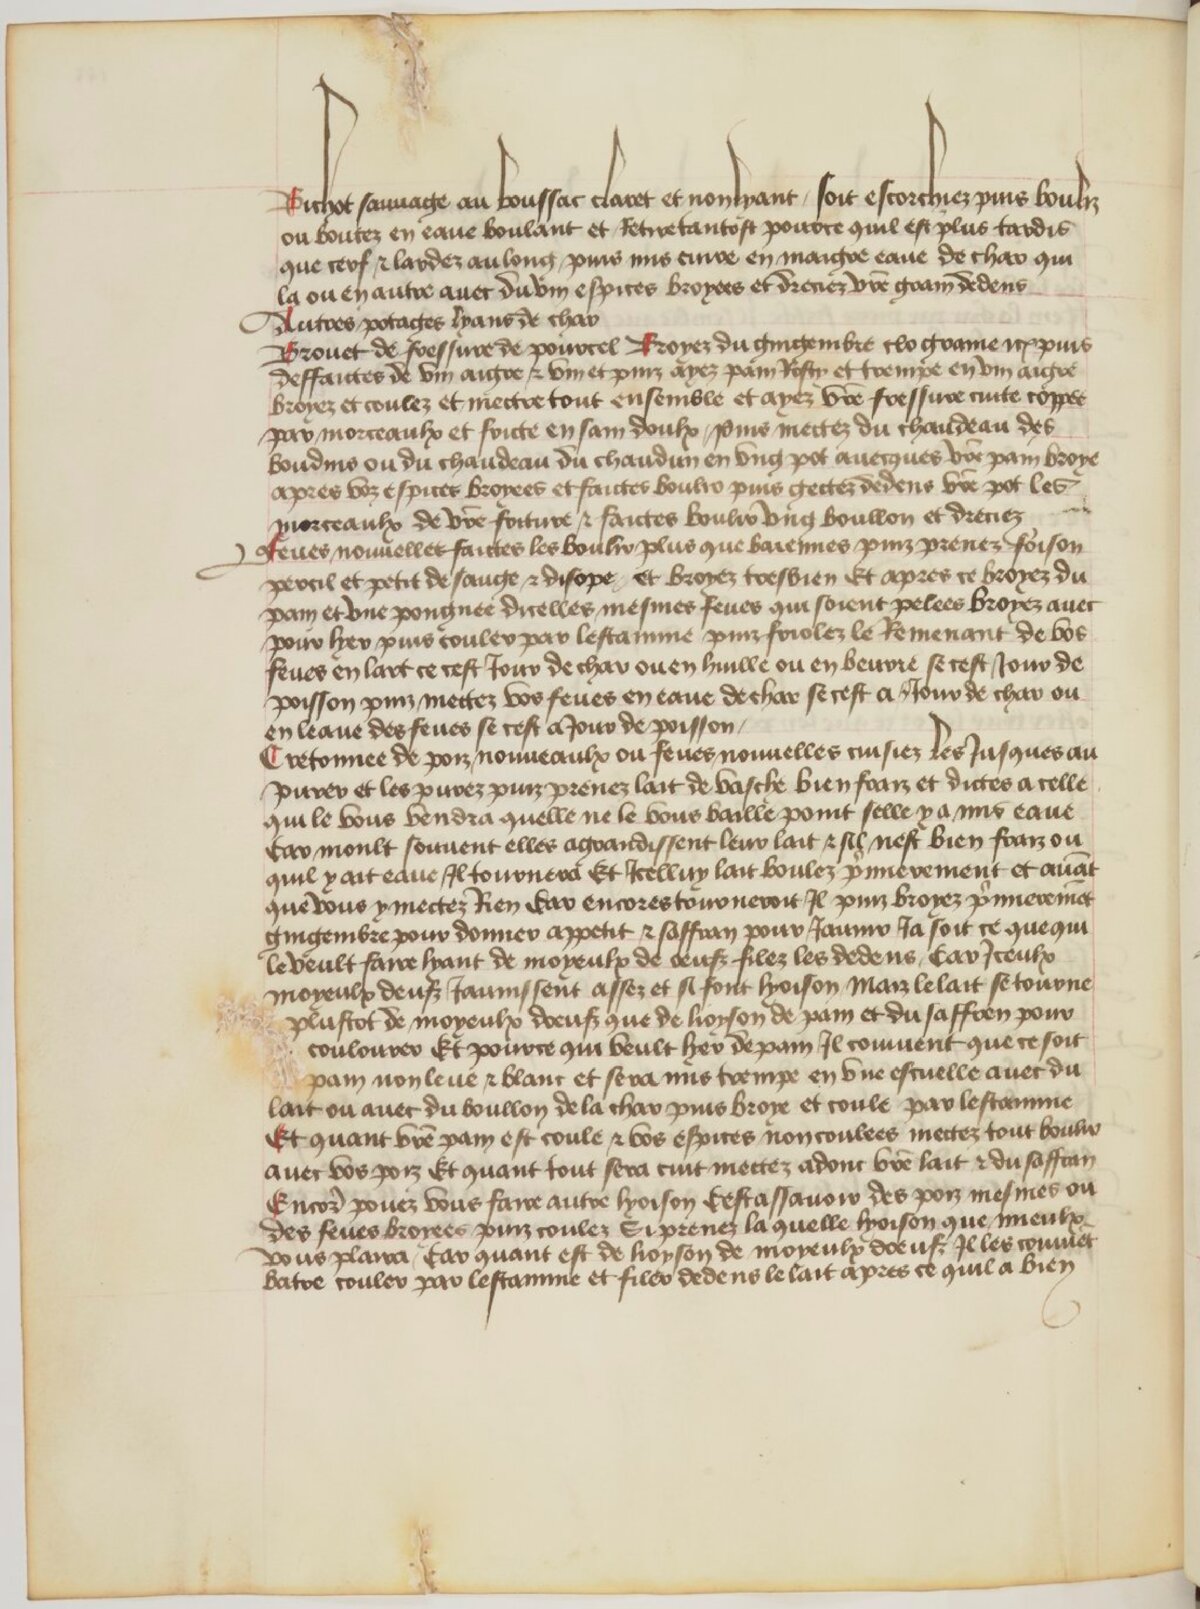 Bichot sauvage au boussac claret et non lyant / soit escorchiez puis boulir
ou boutez en eaue boulant et Retrez tantost pource quil est plus tardis
que cerf & lardez au long puis mis cuire en maigre eaue de char qui
la ou en autre avec du vin espices broyees et dreciez vr̄e grain dedens
Autres potages lyans de char
Brouet de fressure de pourcel Broyez du gingembre clo graine &c puis
deffaictes de vin aigre & vin et puiz ayez pain Rosty et trempe en vin aigre
broyez et coulez et mectre tout ensemble et ayez vr̄e fressure cuite coppee
par morceaulx et fricte en sain doulx / puis mectez du chaudeau des
boudins ou du chaudeau du chaudun en ung pot avecques vr̄e pain broye
apres voz espices broyees et faictes boulir puis gectez dedens vr̄e pot les
morceaulx de vr̄e friture & faictes boulir ung boullon et dreciez
Feves nouvelles faictes les boulir plus que baiennes puiz prenez foison
percil et petit de sauge & disope / et broyez tresbien Et apres ce broyez du
pain et une pongnee dicelles mesmes feves qui soient pelees broyez avec
pour lyer puis couler par lestamine puiz friolez le Remenant de vos
feves en lart ce cest Jour de char ou en huille ou en beurre se cest Jour de
poisson puiz mettez vos feves en eaue de char se cest a Jour de char ou
en leaue des feves se cest a Jour de poisson /
Cretonnee de poiz nouveaulx ou feves nouvelles cuisiez les Jusques au
purer et les purez puiz prenez lait de vasche bien fraiz et dictes a celle
qui le vous vendra quelle ne le vous baille point selle y a mis eaue
Car moult souvent elles agrandissent leur lait & sil nest bien fraiz ou
quil y ait eaue Il tournera Et Icelluy lait boulez p̄mierement et avāt
que vous y mectez Rien Car encores tourneroit Il puiz broyez p̄mieremēt
gingembre pour donner appetit & saffran pour Jaunir Ja soit ce que qui
le veult faire lyant de moyeulx de oeufz filez les dedens / Car Iceulx
moyeulx deufz Jaunissent assez et si font lyoison Maiz le lait se tourne
plustot de moyeulx doeufz que de lioyson de pain et du saffren pour
coulourer Et pource qui veult lyer de pain Il convient que ce soit
pain non leve & blanc et sera mis trempe en une escuelle avec du
lait ou avec du boullon de la char puis broye et coule par lestamine
Et quant vr̄e pain est coule & vos espices non coulees mectez tout boulir
avec vos poiz Et quant tout sera cuit mectez adonc vr̄e lait & du saffran
Encor̄ povez vous faire autre lyoison Cestassavoir des poiz mesmes ou
des feves broyees puiz coulez Si prenez la quelle lyoison que mieulx
vous plaira / Car quant est de lioyson de moyeulx doeufz Il les convīēt
batre couler par lestamine et filer dedens le lait apres ce quil a bien